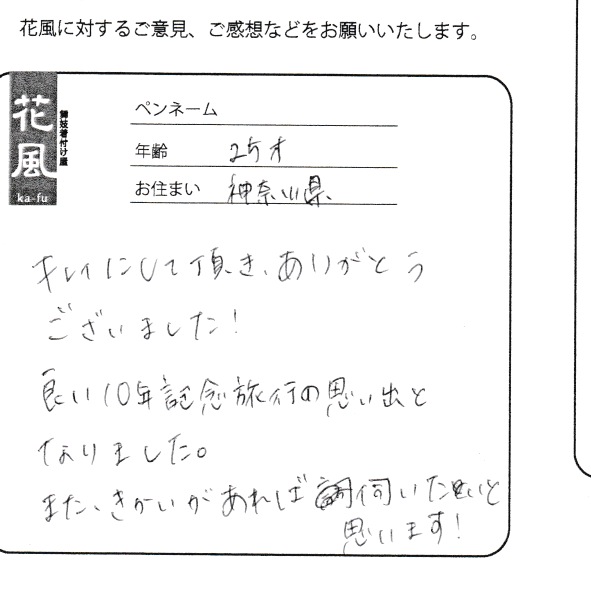 花風に対するご意見、ご感想などをお願いいたします。
花風
舞妓着付け屋
ka-fu
ペンネーム
年齢 25才
お住まい 神奈川県
キレイにして頂き、ありがとう
ございました!
良い10年記念旅行の思い出と
なりました。
また、きかいがあれば伺いたいと
思います!